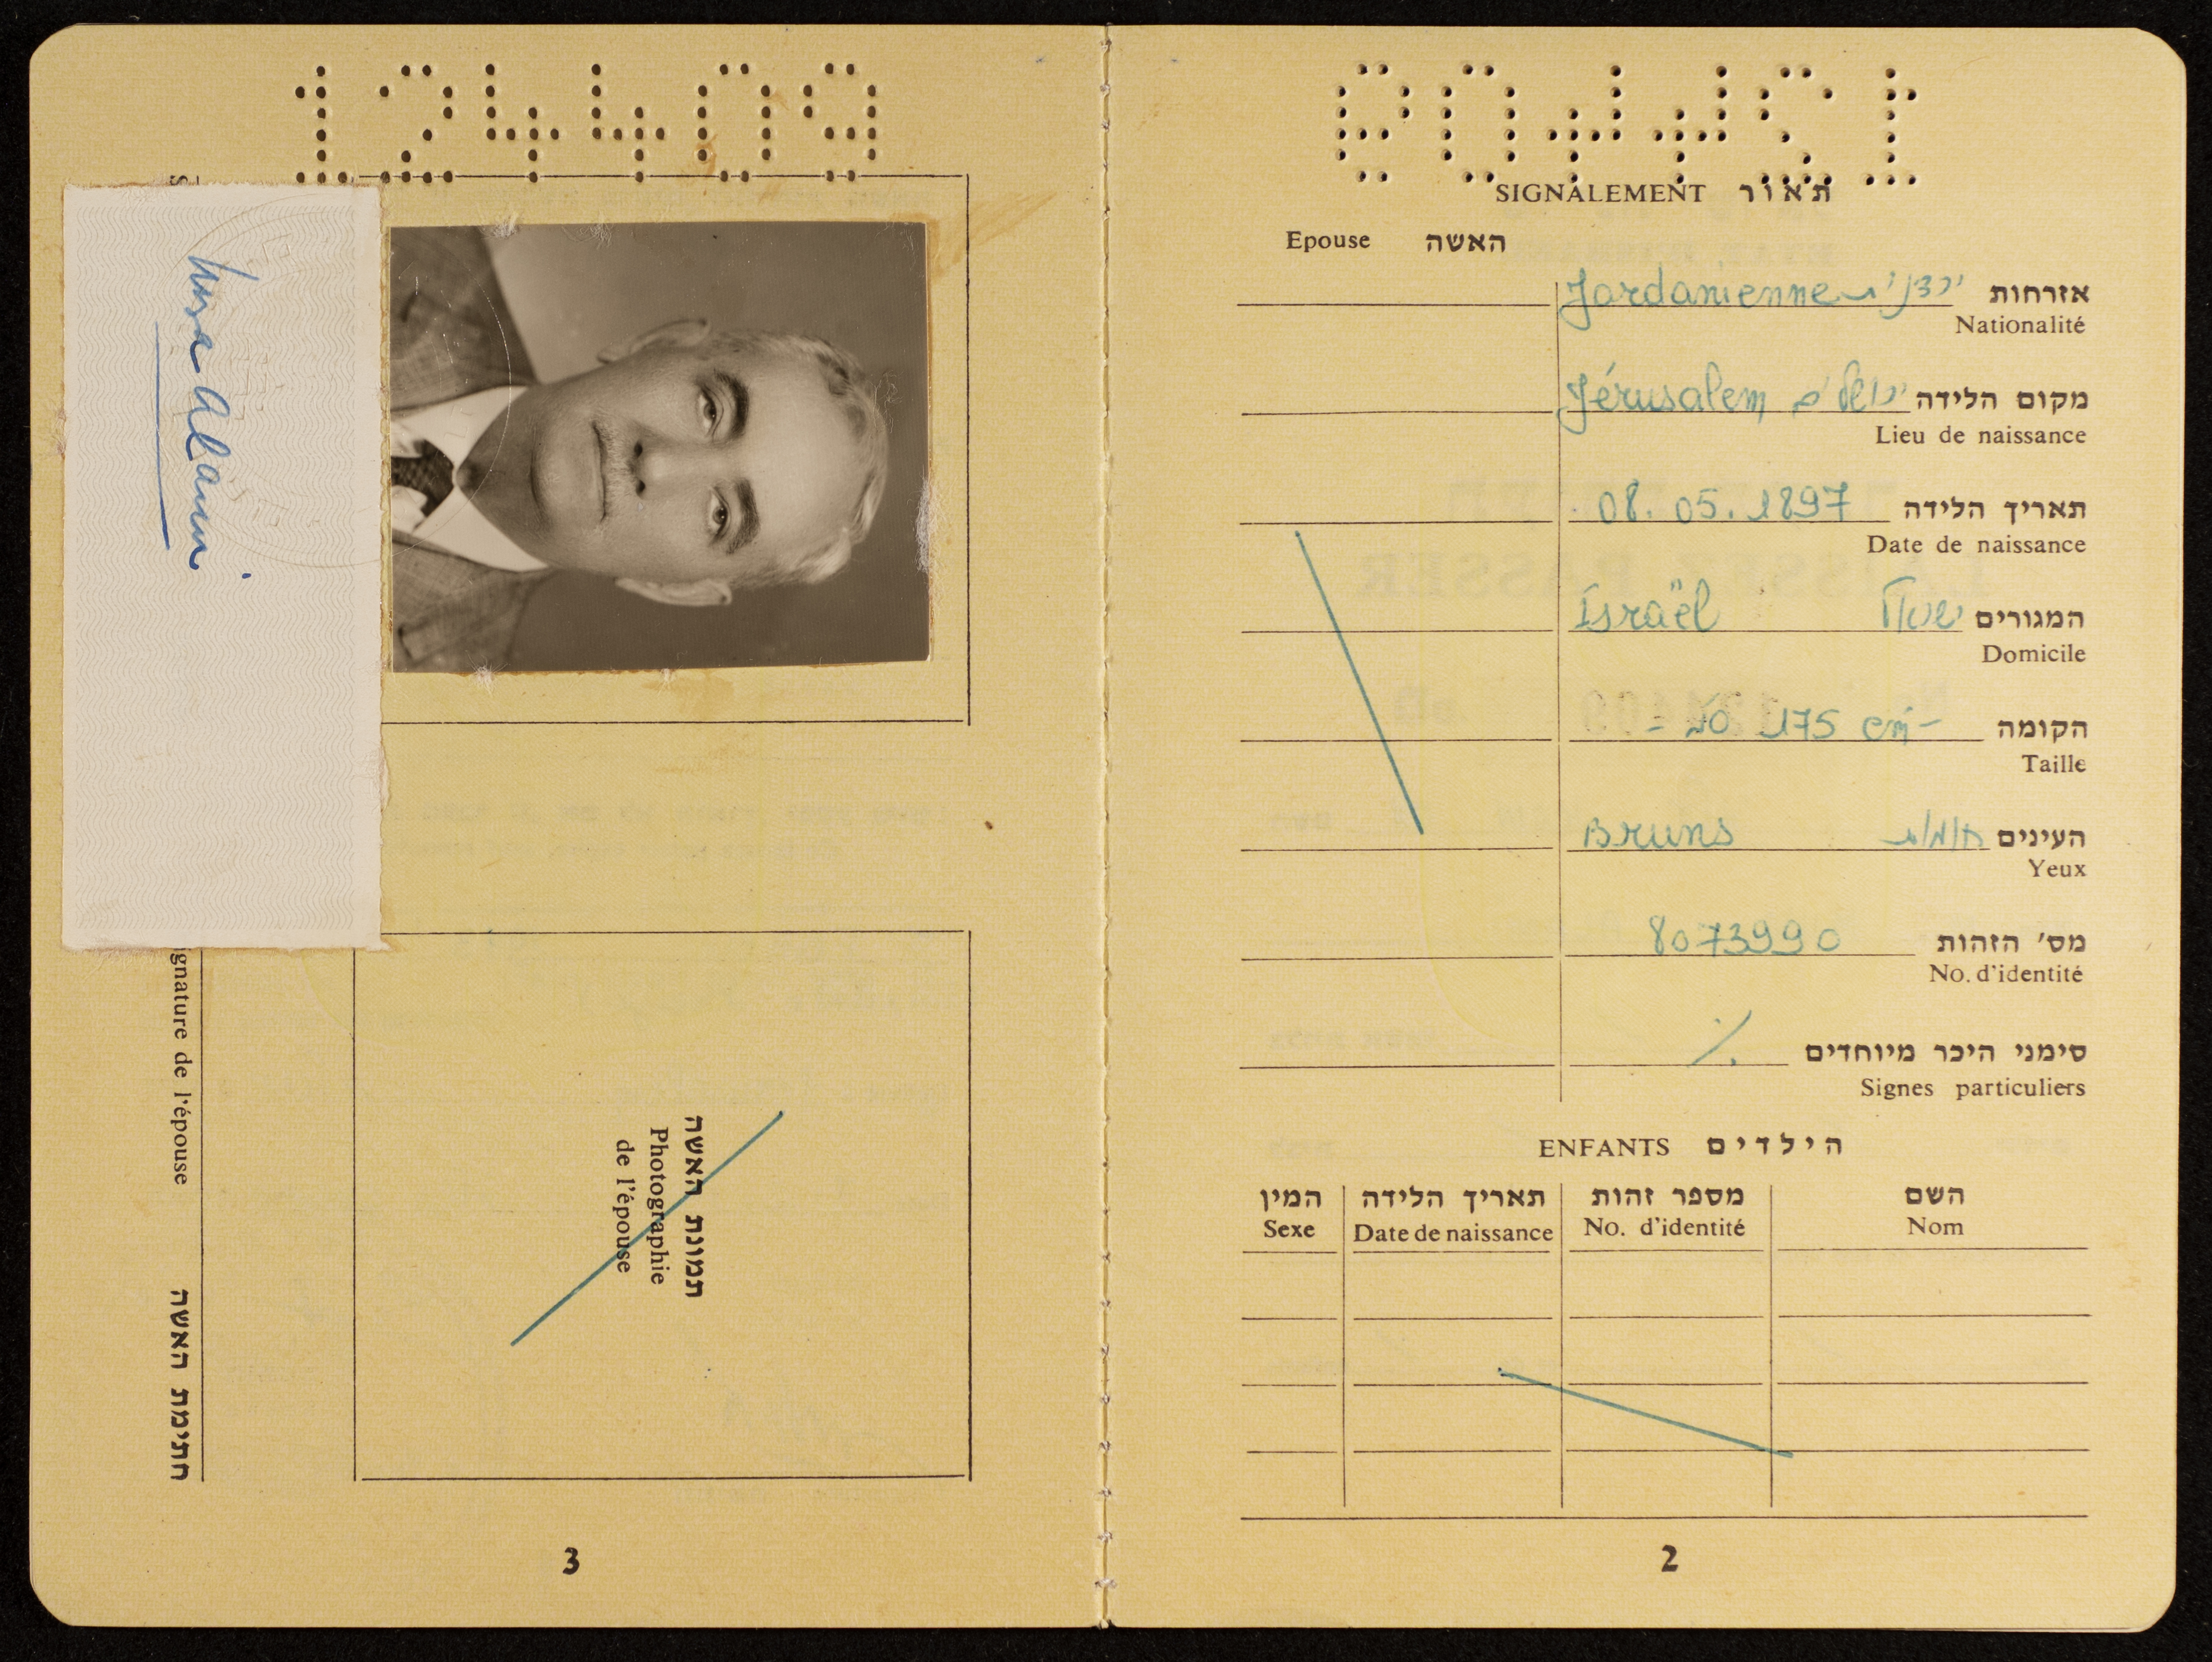 124409
SIGNALEMENT תאור
Epouse האשה
אזרחות ירדנית Jordanienne
Nationalité
מקום הלידה ירושלים Jérusalem
Lieu de naissance
תאריך הלידה 08.05.1897
Date de naissance
המגורים ישראל Israël
Domicile
הקומה 175 cm-
Taille
העינים חומות Bruns
Yeux
מס' הזהות 8073990
No. d'identité
סימני היכר מיוחדים
Signes particuliers
ENFANTS הילדים
השם מספר זהות תאריך הלידה המין
Nom No. d'identité Date de naissance Sexe
2
124409
Musa Alami
תמונת האשה
Photographie
de l'épouse
S
ignature de l'épouse חתימת האשה
3